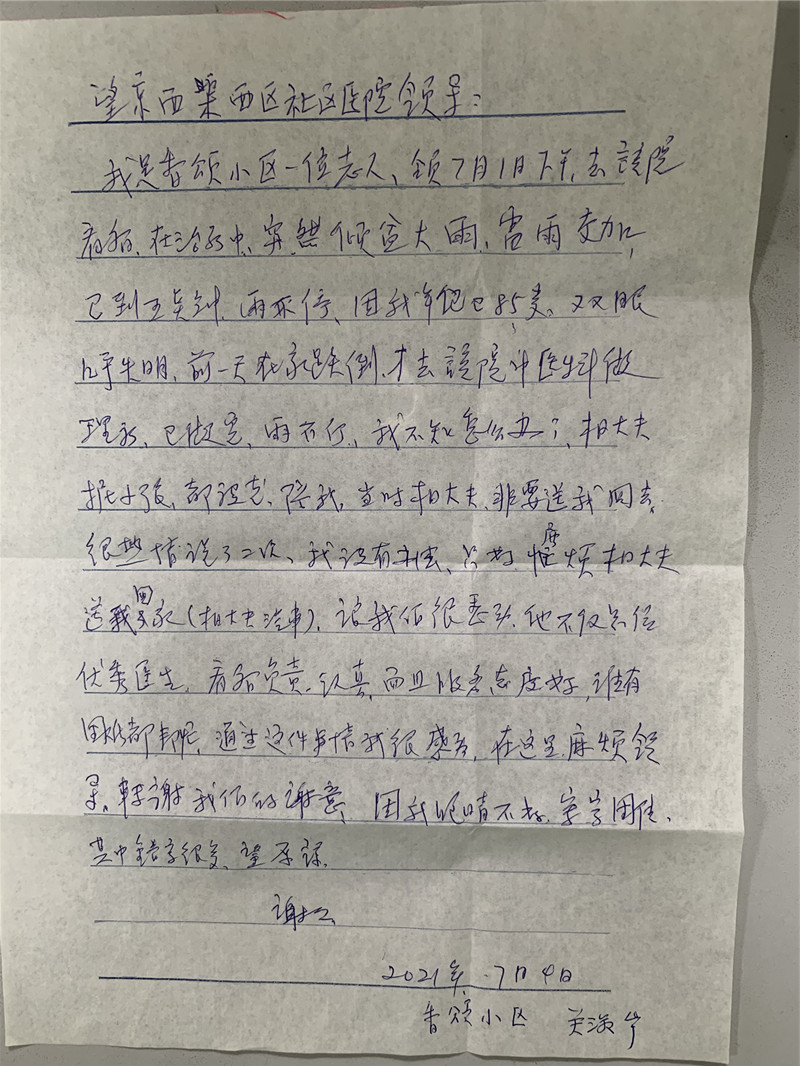 望京西园西区社区医院领导:
我是香颂小区一位老人、领7月1日下午,去該院
看病,在治疗中,突然倾盆大雨,雷雨交加,
已到五点钟,雨不停,因我年纪已85岁。双眼
几乎失明,前一天在家跌倒,才去該院 医生 做
理疗,已做完,雨不行,我不知怎么办?,相大夫
都 陪我,当时相大夫,非要送我回去,
很热情说了二次、我没有办法、只好麻烦相大夫
送我回家(相大夫汽车),让我 很感动,他不仅是位
优秀医生,看病负责,认真,而且服务态度好,谁有
困难都帮忙,通过这件事情我很感动,在这里麻烦领
导, 谢我 的谢意、因我眼睛不好,写字困难、
其中错字很多,望原谅,
谢谢
2021年.7月4日
香颂小区 关